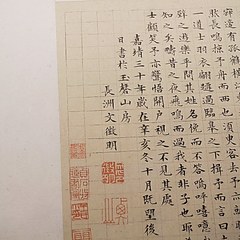 寥適有孤鶴橫
然長鳴掠予舟而西也須臾客去予
一道士羽衣翩躚過臨皋之下揖予而言曰
壁之遊樂乎問其姓名俛而不答嗚呼噫嘻
知之矣疇昔之夜飛鳴而過我者非子也耶
士顧笑予亦驚悟開戶視之不見其處
嘉靖三十年歲在辛亥冬十月既望後
日書於玉磬山房
長洲文徵明